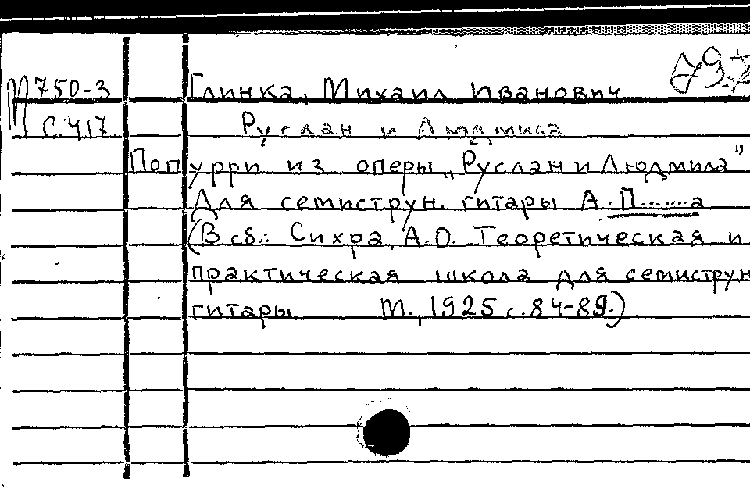 М 750-3 Глинка, Михаил Иванович
С.417. Руслан и Людмила
Попурри из оперы „Руслан и Людмила"
Для семиструн. гитары А. П......а
(В сб.: Сихра, А.О. Теоретическая и
практическая школа для семиструн
гитары М., 1925 с. 84-89.)